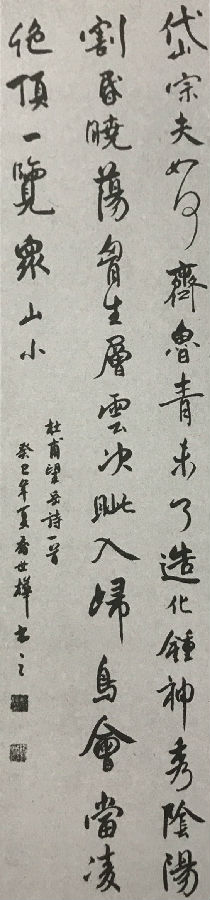 岱宗夫如何齊魯青未了造化鍾神秀陰陽
割昏曉蕩胸生層雲決眥入歸鳥會當凌
絕頂一覽衆山小
杜甫望岳詩一首
癸巳年夏喬世樺书之